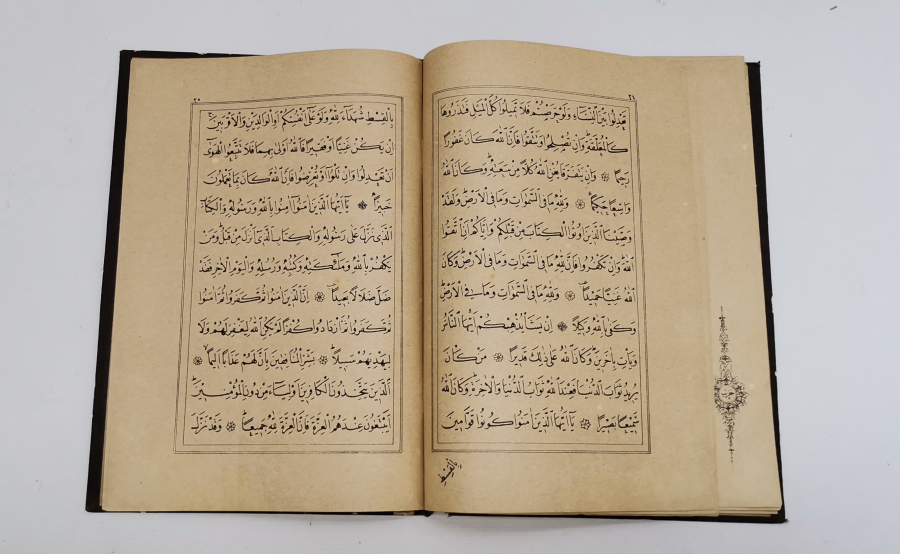 تَعْدِلُوا بَيْنَ النِّسَاءِ وَلَوْ حَرَصْتُمْ فَلَا تَمِيلُوا كُلَّ الْمَيْلِ فَتَذَرُوهَا
كَالْمُعَلَّقَةِ وَاِنْ تُصْلِحُوا وَتَتَّقُوا فَاِنَّ اللّٰهَ كَانَ غَفُورًا
رَحِيمًا ۞ وَاِنْ يَتَفَرَّقَا يُغْنِ اللّٰهُ كُلًّا مِنْ سَعَتِهِ وَكَانَ اللّٰهُ
وَاسِعًا حَكِيمًا ۞ وَلِلّٰهِ مَا فِى السَّمٰوَاتِ وَمَا فِى الْاَرْضِ وَلَقَدْ
وَصَّيْنَا الَّذِينَ اُوتُوا الْكِتَابَ مِنْ قَبْلِكُمْ وَاِيَّاكُمْ اَنِ اتَّقُوا
اللّٰهَ وَاِنْ تَكْفُرُوا فَاِنَّ لِلّٰهِ مَا فِى السَّمٰوَاتِ وَمَا فِى الْاَرْضِ وَكَانَ
اللّٰهُ غَنِيًّا حَمِيدًا ۞ وَلِلّٰهِ مَا فِى السَّمٰوَاتِ وَمَا فِى الْاَرْضِ
وَكَفٰى بِاللّٰهِ وَكِيلًا ۞ اِنْ يَشَأْ يُذْهِبْكُمْ اَيُّهَا النَّاسُ
وَيَأْتِ بِاٰخَرِينَ وَكَانَ اللّٰهُ عَلٰى ذٰلِكَ قَدِيرًا ۞ مَنْ كَانَ
يُرِيدُ ثَوَابَ الدُّنْيَا فَعِنْدَ اللّٰهِ ثَوَابُ الدُّنْيَا وَالْاٰخِرَةِ وَكَانَ اللّٰهُ
سَمِيعًا بَصِيرًا ۞ يَا اَيُّهَا الَّذِينَ اٰمَنُوا كُونُوا قَوَّامِينَ
بِالْقِسْطِ
بِالْقِسْطِ شُهَدَاءَ لِلّٰهِ وَلَوْ عَلٰى اَنْفُسِكُمْ اَوِ الْوَالِدَيْنِ وَالْاَقْرَبِينَ
اِنْ يَكُنْ غَنِيًّا اَوْ فَقِيرًا فَاللّٰهُ اَوْلٰى بِهِمَا فَلَا تَتَّبِعُوا الْهَوٰى
اَنْ تَعْدِلُوا وَاِنْ تَلْوُوا اَوْ تُعْرِضُوا فَاِنَّ اللّٰهَ كَانَ بِمَا تَعْمَلُونَ
خَبِيرًا ۞ يَا اَيُّهَا الَّذِينَ اٰمَنُوا اٰمِنُوا بِاللّٰهِ وَرَسُولِهِ وَالْكِتَابِ
الَّذِى نَزَّلَ عَلٰى رَسُولِهِ وَالْكِتَابِ الَّذِى اَنْزَلَ مِنْ قَبْلُ وَمَنْ
يَكْفُرْ بِاللّٰهِ وَمَلٰئِكَتِهِ وَكُتُبِهِ وَرُسُلِهِ وَالْيَوْمِ الْاٰخِرِ فَقَدْ
ضَلَّ ضَلَالًا بَعِيدًا ۞ اِنَّ الَّذِينَ اٰمَنُوا ثُمَّ كَفَرُوا ثُمَّ اٰمَنُوا
ثُمَّ كَفَرُوا ثُمَّ ازْدَادُوا كُفْرًا لَمْ يَكُنِ اللّٰهُ لِيَغْفِرَ لَهُمْ وَلَا
لِيَهْدِيَهُمْ سَبِيلًا ۞ بَشِّرِ الْمُنَافِقِينَ بِاَنَّ لَهُمْ عَذَابًا اَلِيمًا ۞
الَّذِينَ يَتَّخِذُونَ الْكَافِرِينَ اَوْلِيَاءَ مِنْ دُونِ الْمُؤْمِنِينَ
اَيَبْتَغُونَ عِنْدَهُمُ الْعِزَّةَ فَاِنَّ الْعِزَّةَ لِلّٰهِ جَمِيعًا ۞ وَقَدْ نَزَّلَ